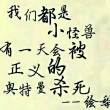 我们都是小怪兽
有一天会被
正义的
奥特曼杀死
——综尝